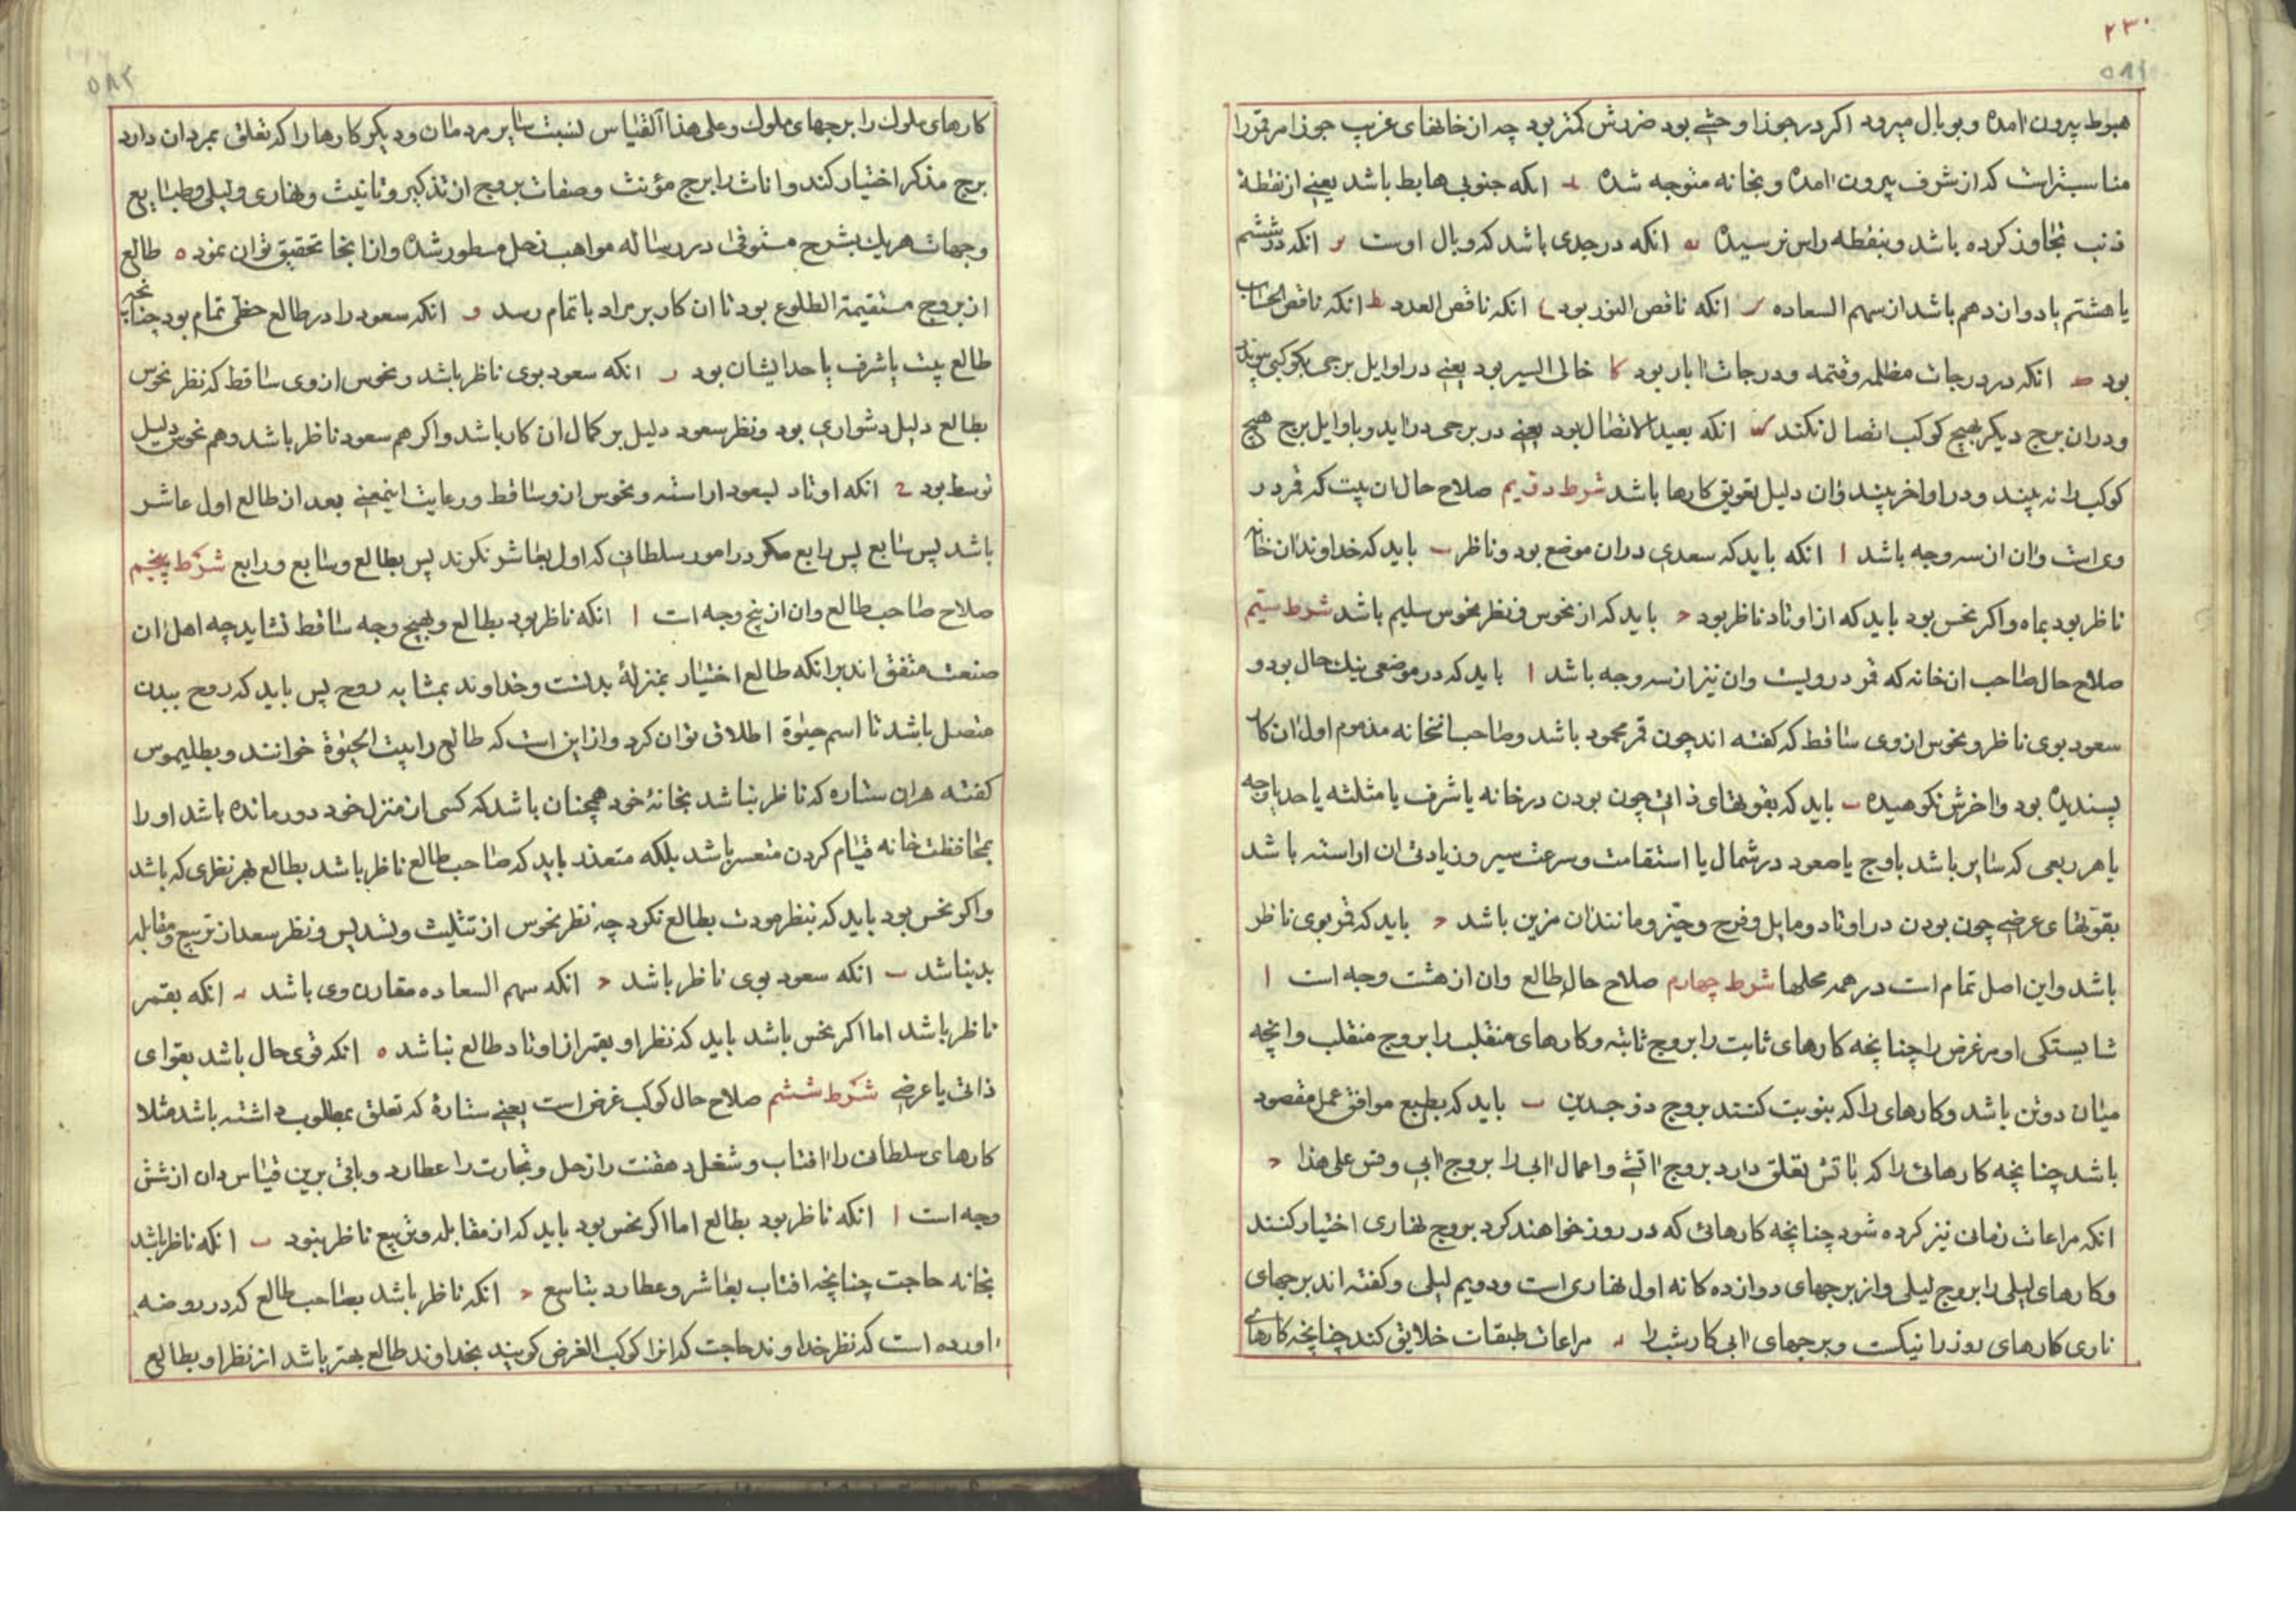 ۲۳۰
۵۸۱
هبوط بیرون امده و بوبال میرود اکر در جوزا وحشی بود ضررش کمتر بود چه از خانهای غریب جوزا مر قمر را
مناسبتر است که از شرف بیرون امده و بخانه متوجه شده انکه جنوبی هابط باشد یعنی از نقطهٔ
ذنب تجاوز کرده باشد و بنقطه راس نرسیده یه انکه در جدی باشد که وبال اوست انکه در ششم
یا هشتم یا دوازدهم باشد از سهم السعاده انکه ناقص النور بود انکه ناقص العدد ط انکه ناقص الحساب
بود انکه در درجات مظلمه و قتمه و درجات ابار بود کا خالی السیر بود یعنی در اوایل برجی بکوکبی پیوندد
و در ان برج دیکر بهیچ کوکب اتصال نکند انکه بعید الاتصال بود یعنی در برجی در اید و باوایل برج هیچ
کوکب را نه بیند و در اواخر بیند و ان دلیل تعویق کارها باشد شرط دویم صلاح حال ان بیت که قمر در
وی است و ان از سه وجه باشد ا انکه باید که سعدی در ان موضع بود و ناظر ب باید که خداوند ان خانه
ناظر بود بماه و اکر نحس بود باید که از اوتاد ناظر بود ح باید که از نحوس و نظر نحوس سلیم باشد شرط سیم
صلاح حال صاحب ان خانه که قمر در ویست و ان نیز از سه وجه باشد ا باید که در موضعی نیک حال بود و
سعود بوی ناظر و نحوس از وی ساقط که کفته اند چون قمر محمود باشد و صاحب انخانه مذموم اول ان کار
پسندیده بود و اخرش نکوهیده ب باید که بقوتهای ذاتی چون بودن در خانه یا شرف یا مثلثه یا حد یا وجه
یا هر ربعی که سایر باشد باوج یا صعود در شمال یا استقامت و سرعت سیر و زیادتی ان اراسته باشد
بقوتهای عرضی چون بودن در اوتاد و مایل و فرح و حیز و مانند ان مزین باشد ح باید که قمر بوی ناظر
باشد و این اصل تمام است در همه محلها شرط چهارم صلاح حال طالع و ان از هشت وجه است ا
شایستکی او مر غرض را چنانچه کارهای ثابت را بروج ثابته و کارهای منقلب را بروج منقلب و انچه
میان دو تن باشد و کارهای را که بنوبت کنند بروج ذو جسدین ب باید که بطبع موافق عمل مقصود
باشد چنانچه کارهائی را که باتش تعلق دارد بروج اتشی و اعمال ابی را بروج ابی و قس علی هذا ح
انکه مراعات زمان نیز کرده شود چنانچه کارهائی که در روز خواهند کرد بروج نهاری اختیار کنند
و کارهای لیلی را بروج لیلی و از برجهای دوازده کانه اول نهاری است و دویم لیلی و کفته اند برجهای
ناری کارهای روز را نیکست و برجهای ابی کار شب را مراعات طبقات خلایق کند چنانچه کارهای
۵۸۲
کارهای ملوک را برجهای ملوک و علی هذا القیاس نسبت سایر مردمان و دیکر کارها را که تعلق بمردان دارد
برج مذکر اختیار کند و اناث را برج مؤنث و صفات بروج از تذکیر و تانیث و نهاری و لیلی و طبایع
و جهات هر یک بشرح مستوفی در رساله مواهب زحل مسطور شده و از انجا تحقیق توان نمود ه طالع
از بروج مستقیمة الطلوع بود تا ان کار بر مراد باتمام رسد و انکه سعود را در طالع حظی تمام بود چنانچه
طالع بیت یا شرف یا حد ایشان بود ر انکه سعود بوی ناظر باشد و نحوس از وی ساقط که نظر نحوس
بطالع دلیل دشواری بود و نظر سعود دلیل بر کمال ان کار باشد و اکر هم سعود ناظر باشد و هم نحوس دلیل
توسط بود ح انکه اوتاد بسعود اراسته و نحوس از و ساقط و رعایت اینمعنی بعد از طالع اول عاشر
باشد پس سابع پس رابع مکر در امور سلطانی که اول بعاشر نکرند پس بطالع و سابع و رابع شرط پنجم
صلاح صاحب طالع و ان از پنج وجه است ا انکه ناظر بود بطالع و بهیچ وجه ساقط نشاید چه اهل ان
صنعت متفق اند بر انکه طالع اختیار بمنزلهٔ بدنست و خداوند بمشابه روح پس باید که روح ببدن
متصل باشد تا اسم حیٰوة اطلاق توان کرد و از این است که طالع را بیت الحیٰوة خوانند و بطلیموس
کفته هر ان ستاره که ناظر نباشد بخانهٔ خود همچنان باشد که کسی از منزل خود دور مانده باشد او را
بمحافظت خانه قیام کردن متعسر باشد بلکه متعذر باید که صاحب طالع ناظر باشد بطالع بهر نظری که باشد
و اکر نحس بود باید که بنظر مودت بطالع نکرد چه نظر نحوس از تثلیث و تسدیس و نظر سعد از تربیع و مقابله
بد نباشد ب انکه سعود بوی ناظر باشد ح انکه سهم السعاده مقارن وی باشد د انکه بقمر
ناظر باشد اما اکر نحس باشد باید که نظر او بقمر از اوتاد طالع نباشد ه انکه قوی حال باشد بقوای
ذاتی یا عرضی شرط ششم صلاح حال کوکب غرض است یعنی ستارهٔ که تعلق بمطلوب داشته باشد مثلا
کارهای سلطانی را افتاب و شغل دهقنت را زحل و تجارت را عطارد و باقی برین قیاس و ان از شش
وجه است ا انکه ناظر بود بطالع اما اکر نحس بود باید که از مقابله و تربیع ناظر نبود ب انکه ناظر باشد
بخانه حاجت چنانچه افتاب بعاشر و عطارد بتاسع ح انکه ناظر باشد بصاحب طالع که در روضه
اورده است که نظر خداوند حاجت که انرا کوکب الغرض کویند بخداوند طالع بهتر باشد از نظر او بطالع